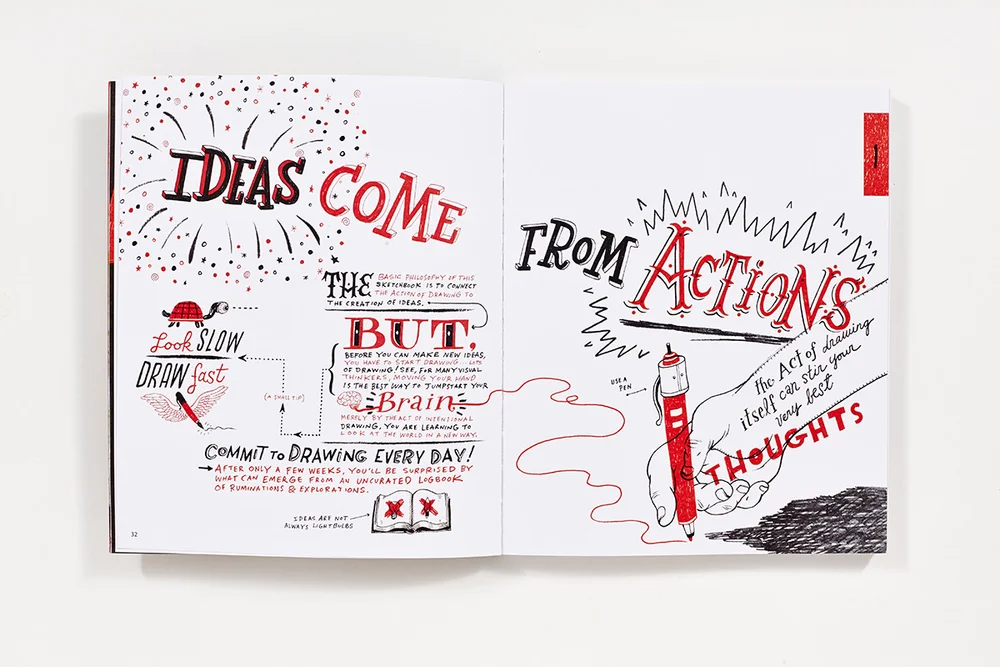 IDEAS COME
THE BASIC PHILOSOPHY OF THIS
SKETCHBOOK IS TO CONNECT
THE ACTION OF DRAWING TO
THE CREATION OF IDEAS.
BUT,
BEFORE YOU CAN MAKE NEW IDEAS,
YOU HAVE TO START DRAWING... LOTS
OF DRAWING! SEE, FOR MANY VISUAL
THINKERS, MOVING YOUR HAND
IS THE BEST WAY TO JUMPSTART YOUR
Brain
MERELY BY THE ACT OF INTENTIONAL
DRAWING, YOU ARE LEARNING TO
LOOK AT THE WORLD IN A NEW WAY.
Look SLOW
DRAW fast
(A SMALL TIP)
COMMIT TO DRAWING EVERY DAY!
AFTER ONLY A FEW WEEKS, YOU'LL BE SURPRISED BY
WHAT CAN EMERGE FROM AN UNCURATED LOGBOOK
OF RUMINATIONS & EXPLORATIONS.
IDEAS ARE NOT
ALWAYS LIGHTBULBS
32
1
FROM ACTIONS
USE A
PEN
the Act of drawing
itself can stir your
very best
THOUGHTS